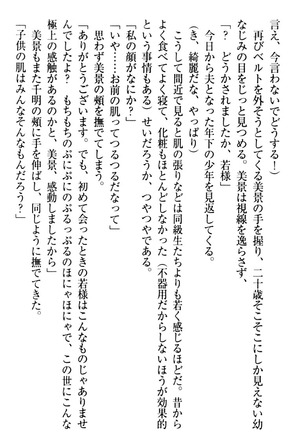 言え、今言わないでどうする！）
　再びベルトを外そうとしてくる美景の手を握り、二十歳そこそこにしか見えない幼
なじみの目をじっと見つめる。美景は視線を逸らさず、
「？　どうかされましたか、若様」
　今日から夫となった年下の少年を見返してくる。
（き、綺麗だな、やっぱり）
　こうして間近で見ると肌の張りなどは同級生たちよりも若く感じるほどだ。昔から
よく食べてよく寝て、化粧もほとんどしなかった（不器用だからしないほうが効果的
という事情もある）せいだろうか、つやつやである。
「私の顔がなにか？」
「いや……お前の肌ってつるつるだなって」
　思わず美景の頬を撫でてしまう。
「ありがとうございます。でも、初めて会ったときの若様はこんなものじゃありませ
んでしたよ？　もちもちのぷにぷにのぷるっぷるのほにゃほにゃで、この世にこんな
極上の感触があるのかと、美景、感動しましたから」
　美景もまた千明の頬に手を伸ばし、同じように撫でてきた。
「子供の肌はみんなそんなもんだろう？」